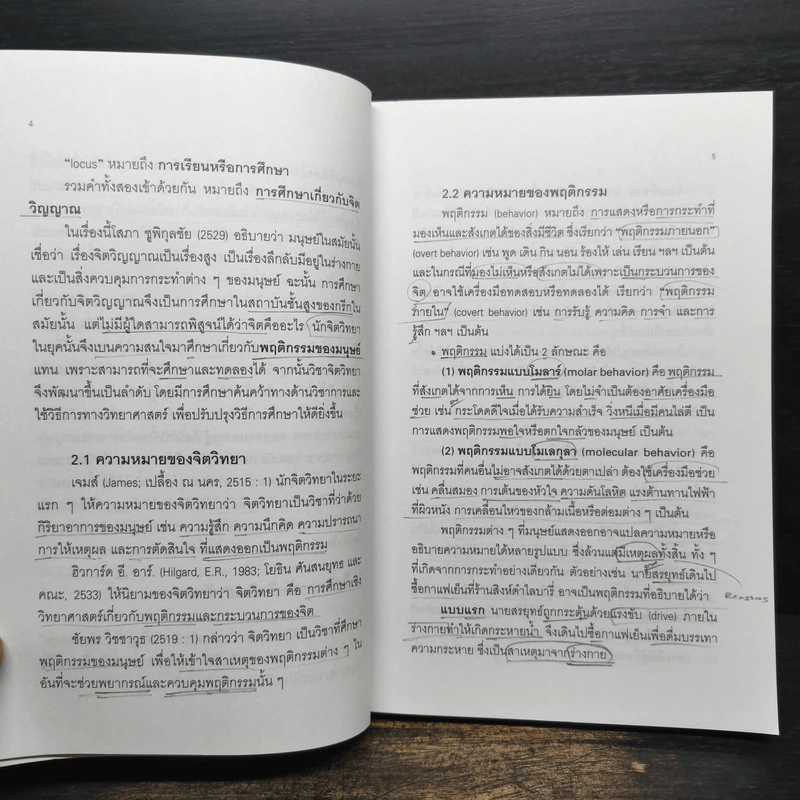 4
"locus" หมายถึง การเรียนหรือการศึกษา
รวมคำทั้งสองเข้าด้วยกัน หมายถึง การศึกษาเกี่ยวกับจิต
วิญญาณ
ในเรื่องนี้โสภา ชูพิกุลชัย (2529) อธิบายว่า มนุษย์ในสมัยนั้น
เชื่อว่า เรื่องจิตวิญญาณเป็นเรื่องสูง เป็นเรื่องลึกลับมีอยู่ในร่างกาย
และเป็นสิ่งควบคุมการกระทำต่าง ๆ ของมนุษย์ ฉะนั้น การศึกษา
เกี่ยวกับจิตวิญญาณจึงเป็นการศึกษาในสถาบันชั้นสูงของกรีกใน
สมัยนั้น แต่ไม่มีผู้ใดสามารถพิสูจน์ได้ว่าจิตคืออะไร นักจิตวิทยา
ในยุคนั้นจึงเบนความสนใจมาศึกษาเกี่ยวกับพฤติกรรมของมนุษย์
แทน เพราะสามารถที่จะศึกษาและทดลองได้ จากนั้นวิชาจิตวิทยา
จึงพัฒนาขึ้นเป็นลำดับ โดยมีการศึกษาค้นคว้าทางด้านวิชาการและ
ใช้วิธีการทางวิทยาศาสตร์ เพื่อปรับปรุงวิธีการศึกษาให้ดียิ่งขึ้น
2.1 ความหมายของจิตวิทยา
เจมส์ (James; เปลื้อง ณ นคร, 2515 : 1) นักจิตวิทยาในระยะ
แรก ๆ ให้ความหมายของจิตวิทยาว่า จิตวิทยาเป็นวิชาที่ว่าด้วย
กิริยาอาการของมนุษย์ เช่น ความรู้สึก ความนึกคิด ความปรารถนา
การให้เหตุผล และการตัดสินใจ ที่แสดงออกเป็นพฤติกรรม
ฮิวการ์ด อี. อาร์. (Hilgard, E.R., 1983; โยธิน ศันสนยุทธ และ
คณะ, 2533) ให้นิยามของจิตวิทยาว่า จิตวิทยา คือ การศึกษาเชิง
วิทยาศาสตร์เกี่ยวกับพฤติกรรมและกระบวนการของจิต
ชัยพร วิชชาวุธ (2519 : 1) กล่าวว่า จิตวิทยา เป็นวิชาที่ศึกษา
พฤติกรรมของมนุษย์ เพื่อให้เข้าใจสาเหตุของพฤติกรรมต่าง ๆ ใน
อันที่จะช่วยพยากรณ์และควบคุมพฤติกรรมนั้น ๆ
5
2.2 ความหมายของพฤติกรรม
พฤติกรรม (behavior) หมายถึง การแสดงหรือการกระทำที่
มองเห็นและสังเกตได้ของสิ่งมีชีวิต ซึ่งเรียกว่า "พฤติกรรมภายนอก"
(overt behavior) เช่น พูด เดิน กิน นอน ร้องไห้ เล่น เรียน ฯลฯ เป็นต้น
และในกรณีที่มองไม่เห็นหรือสังเกตไม่ได้เพราะเป็นกระบวนการของ
จิต อาจใช้เครื่องมือทดสอบหรือทดลองได้ เรียกว่า "พฤติกรรม
ภายใน" (covert behavior) เช่น การรับรู้ ความคิด การจำ และการ
รู้สึก ฯลฯ เป็นต้น
• พฤติกรรม แบ่งได้เป็น 2 ลักษณะ คือ
(1) พฤติกรรมแบบโมลาร์ (molar behavior) คือ พฤติกรรม
ที่สังเกตได้จากการเห็น การได้ยิน โดยไม่จำเป็นต้องอาศัยเครื่องมือ
ช่วย เช่น กระโดดดีใจเมื่อได้รับความสำเร็จ วิ่งหนีเมื่อมีคนไล่ตี เป็น
การแสดงพฤติกรรมพอใจหรือตกใจกลัวของมนุษย์ เป็นต้น
(2) พฤติกรรมแบบโมเลกุลา (molecular behavior) คือ
พฤติกรรมที่คนอื่นไม่อาจสังเกตได้ด้วยตาเปล่า ต้องใช้เครื่องมือช่วย
เช่น คลื่นสมอง การเต้นของหัวใจ ความดันโลหิต แรงต้านทานไฟฟ้า
ที่ผิวหนัง การเคลื่อนไหวของกล้ามเนื้อหรือต่อมต่าง ๆ เป็นต้น
พฤติกรรมต่าง ๆ ที่มนุษย์แสดงออกอาจแปลความหมายหรือ
อธิบายความหมายได้หลายรูปแบบ ซึ่งล้วนแต่มีเหตุผลทั้งสิ้น ทั้ง ๆ
ที่เกิดจากการกระทำอย่างเดียวกัน ตัวอย่างเช่น นายสรยุทธ์เดินไป
ซื้อกาแฟเย็นที่ร้านสิงห์ดำไลบารี่ อาจเป็นพฤติกรรมที่อธิบายได้ว่า
Reasons
แบบแรก นายสรยุทธ์ถูกกระตุ้นด้วยแรงขับ (drive) ภายใน
ร่างกายทำให้เกิดกระหายน้ำ จึงเดินไปซื้อกาแฟเย็นเพื่อดื่มบรรเทา
ความกระหาย ซึ่งเป็นสาเหตุมาจากร่างกาย